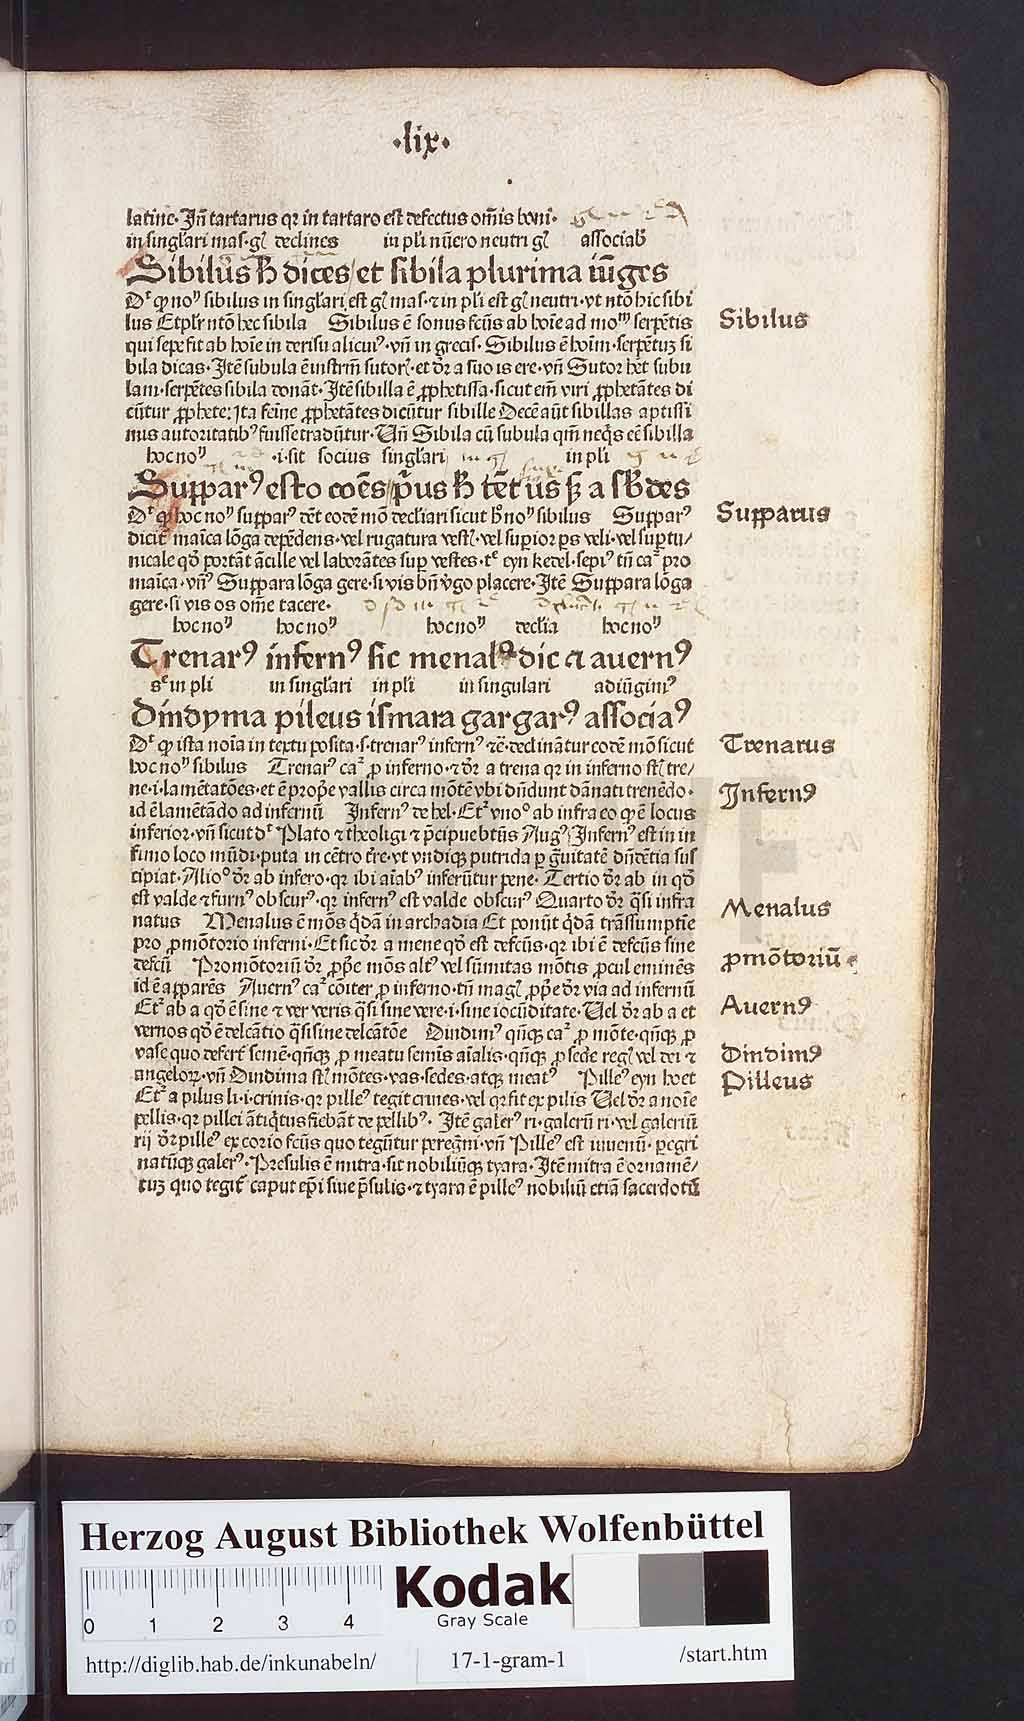 ·lix·
latine· Jñ tartarus qr in tartaro est defectus om̄is boni·
in singl'ari mas·gł declines in pl'i nūero neutri gł associab'
Sibilus h̄ dices/et sibila plurima iūges
lus Etpl'r nt̄o hec sibila Sibilus ē sonus fc̄us ab hoīe ad mo serpētis
Sibilus
qui sepe fit ab hoīe in derisu alicui⁹· vn̄ in grecis· Sibilus ē hoīm·serpētuʒ si
bila dicas· Itē subula ē instrm̄ sutor· et dr̄ a suo is ere·vn̄ Sutor het subu
lam·serpētes sibila donāt· Itē sibilla ē ꝓphetissa·sicut em̄ viri ꝓphetātes di
cūtur ꝓphete: Ita feīne ꝓphetātes dicūtur sibille Decē aūt sibillas aptissi
mis autoritatib⁹ fuisse tradūtur· Un̄ Sibila cū subula qm̄ neq̄s eē sibilla
hoc no ·i·sit socius singl'ari in pl'i
Suppar⁹ esto coēs p̄us h̄ tēt us s a s des
Supparus
dicit maīca lōga depēdens·vel rugatura vest·vel supior ps veli·vel sup tu/
nicale qd̄ portāt ācille vel laborātes sup vestes·
maīca·vn̄ Suppara lōga gere·si vis bn̄ v̄go placere· Itē Suppara lōga
gere·si vis os om̄e tacere·
hoc no hoc no hoc no declīa hoc no
Trenar⁹ infern⁹ sic menal⁹ dic et auern⁹
in pl'i in singl'ari in pl'i in singulari adiūgim⁹
Dindyma pileus ismara gargar⁹ associa⁹
Trenarus
hoc no sibilus Trenar⁹ ca ꝓ inferno·⁊ dr̄ a trena qr in inferno st tre/
ne·i·lamētatōes·et ē prope vallis circa mōtē vbi dn̄dunt dānati trenēdo·
id ē lamētādo ad infernū Infern⁹ de hel· ab infra eo ꝙ ē locus
Jnfern⁹
inferior·vn̄ sicut Plato ⁊ theologi ⁊ p̄cipue btūs Aug⁹ Infern⁹ est in in
fimo loco mūdi·puta in cētro tr̄e·vt vndiqꝫ putrida p g̃uitatē dn̄cētia sus
cipiat· Alio dr̄ ab infero·qr ibi aīab⁹ inferūtur pene· Tertio dr̄ ab in qd̄
est valde ⁊ furn⁹ obscur⁹·qr infern⁹ est valde obscur⁹ Quarto dr̄ q̄si infra
natus Menalus ē mōs q̄dā in archadia Et ponūt q̄dā trāssumptīe
Menalus
pro ꝓmōtorio inferni·Et sic dr̄ a mene qd̄ est defcūs·qr ibi ē defcūs sine
defcū Promōtoriū dr̄ ꝓp̄e mōs alt⁹ vel sūmitas mōtis ꝓcul eminēs
ꝓmōtoriū
id ē apparēs Auern⁹ ca cōiter ꝓ inferno·tn̄ mag ꝓp̄e dr̄ via ad infernū
ab a qd̄ ē sine ⁊ ver veris q̄si sine vere·i·sine iocūditate· Uel dr̄ ab a et
Auern⁹
vernos qd̄ ē delcātio q̄si sine delcātōe Dindim⁹ qn̄qꝫ ca ꝓ mōte·qn̄qꝫ ꝓ
vase quo defert semē·qn̄qꝫ ꝓ meatu semīs aīalis·qn̄qꝫ ꝓ sede reg vel dei ⁊
Dindim⁹
angelor·vn̄ Dindima st mōtes·vas·sedes·atqꝫ meat⁹ Pille⁹ eyn hoet
Pilleus
a pilus li·i·crinis·qr pille⁹ tegit crines·vel qr fit ex pilis Uel dr̄ a noīe
pellis·qr pillei ātiq̄tus fiebāt de pellib⁹· Itē galer⁹ ri·galerū ri·vel galeriū
rij dr̄ pille⁹ ex corio fcūs quo tegūtur peregn̄i·vn̄ Pille⁹ est iuuenū·pegri
natūqꝫ galer⁹· Presulis ē mitra·sit nobiliūqꝫ tyara· Itē mitra ē ornamē/
tuʒ quo tegit caput ep̄i siue p̄sulis·⁊ tyara ē pille⁹ nobiliū etiā sacerdotū
Herzog August Bibliothek Wolfenbüttel
0 1 2 3 4
Kodak
Gray Scale
http://diglib.hab.de/inkunabeln/
17-1-gram-1
/start.htm